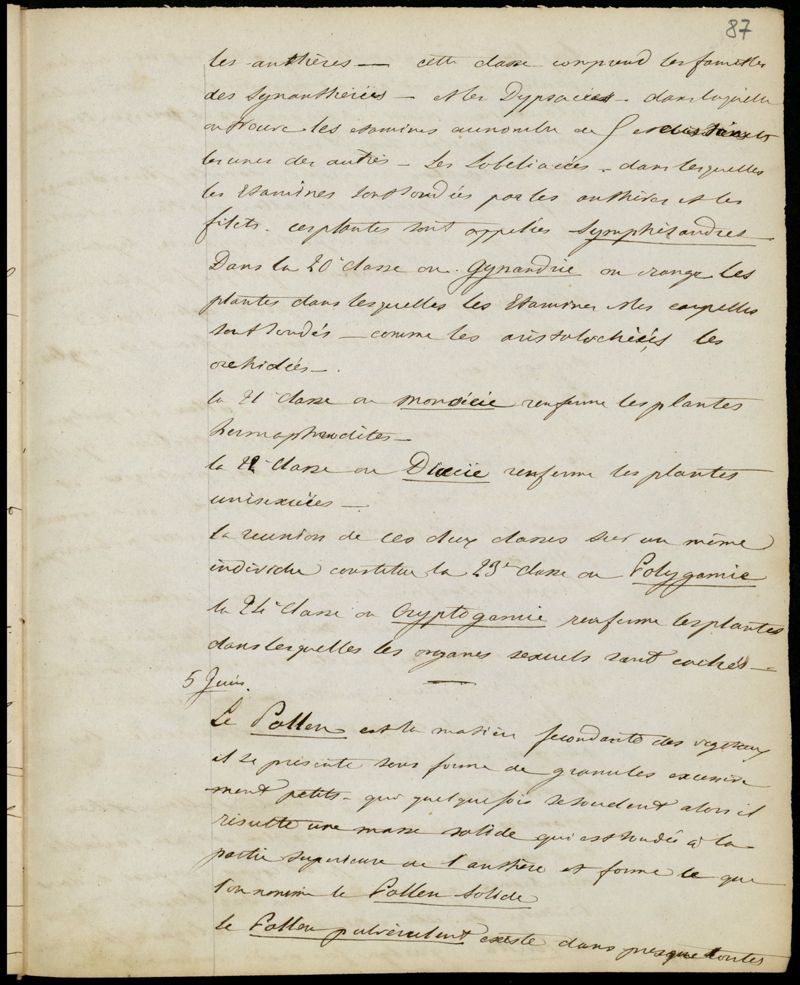 87
les anthères — cette classe comprend les familles
des Synanthérées — et les Dypsacées — dans laquelle
on trouve les etamines au nombre de 5 et distinctes
les unes des autres — Les Lobéliacées — dans lesquelles
les Etamines sont soudées par les anthères et les
filets. ces plantes sont appelées Symphisandres
Dans la 20e classe ou Gynandrie on range les
plantes dans lesquelles les Etamines et les carpelles
sont soudés — comme les aristolochiées, les
orchidées —.
la 21e classe ou monoécie renferme les plantes
hermaphrodites —
la 22e classe ou Dioecie renferme les plantes
unisexuées —
la reunion de ces deux classes sur un même
individu constitue la 23e classe ou Polygamie
la 24e classe ou Cryptogamie renferme les plantes
dans lesquelles les organes sexuels sont cachés —
5 Juin.
Le Pollen est la matière fecondante des vegetaux
il se présente sous forme de granules excessive
ment petits — qui quelquefois se soudent alors il
résulte une masse solide qui est soudée à la
partie superieure de l'anthère et forme ce que
l'on nomme le Pollen solide
le Pollen pulvérulent existe dans presque toutes